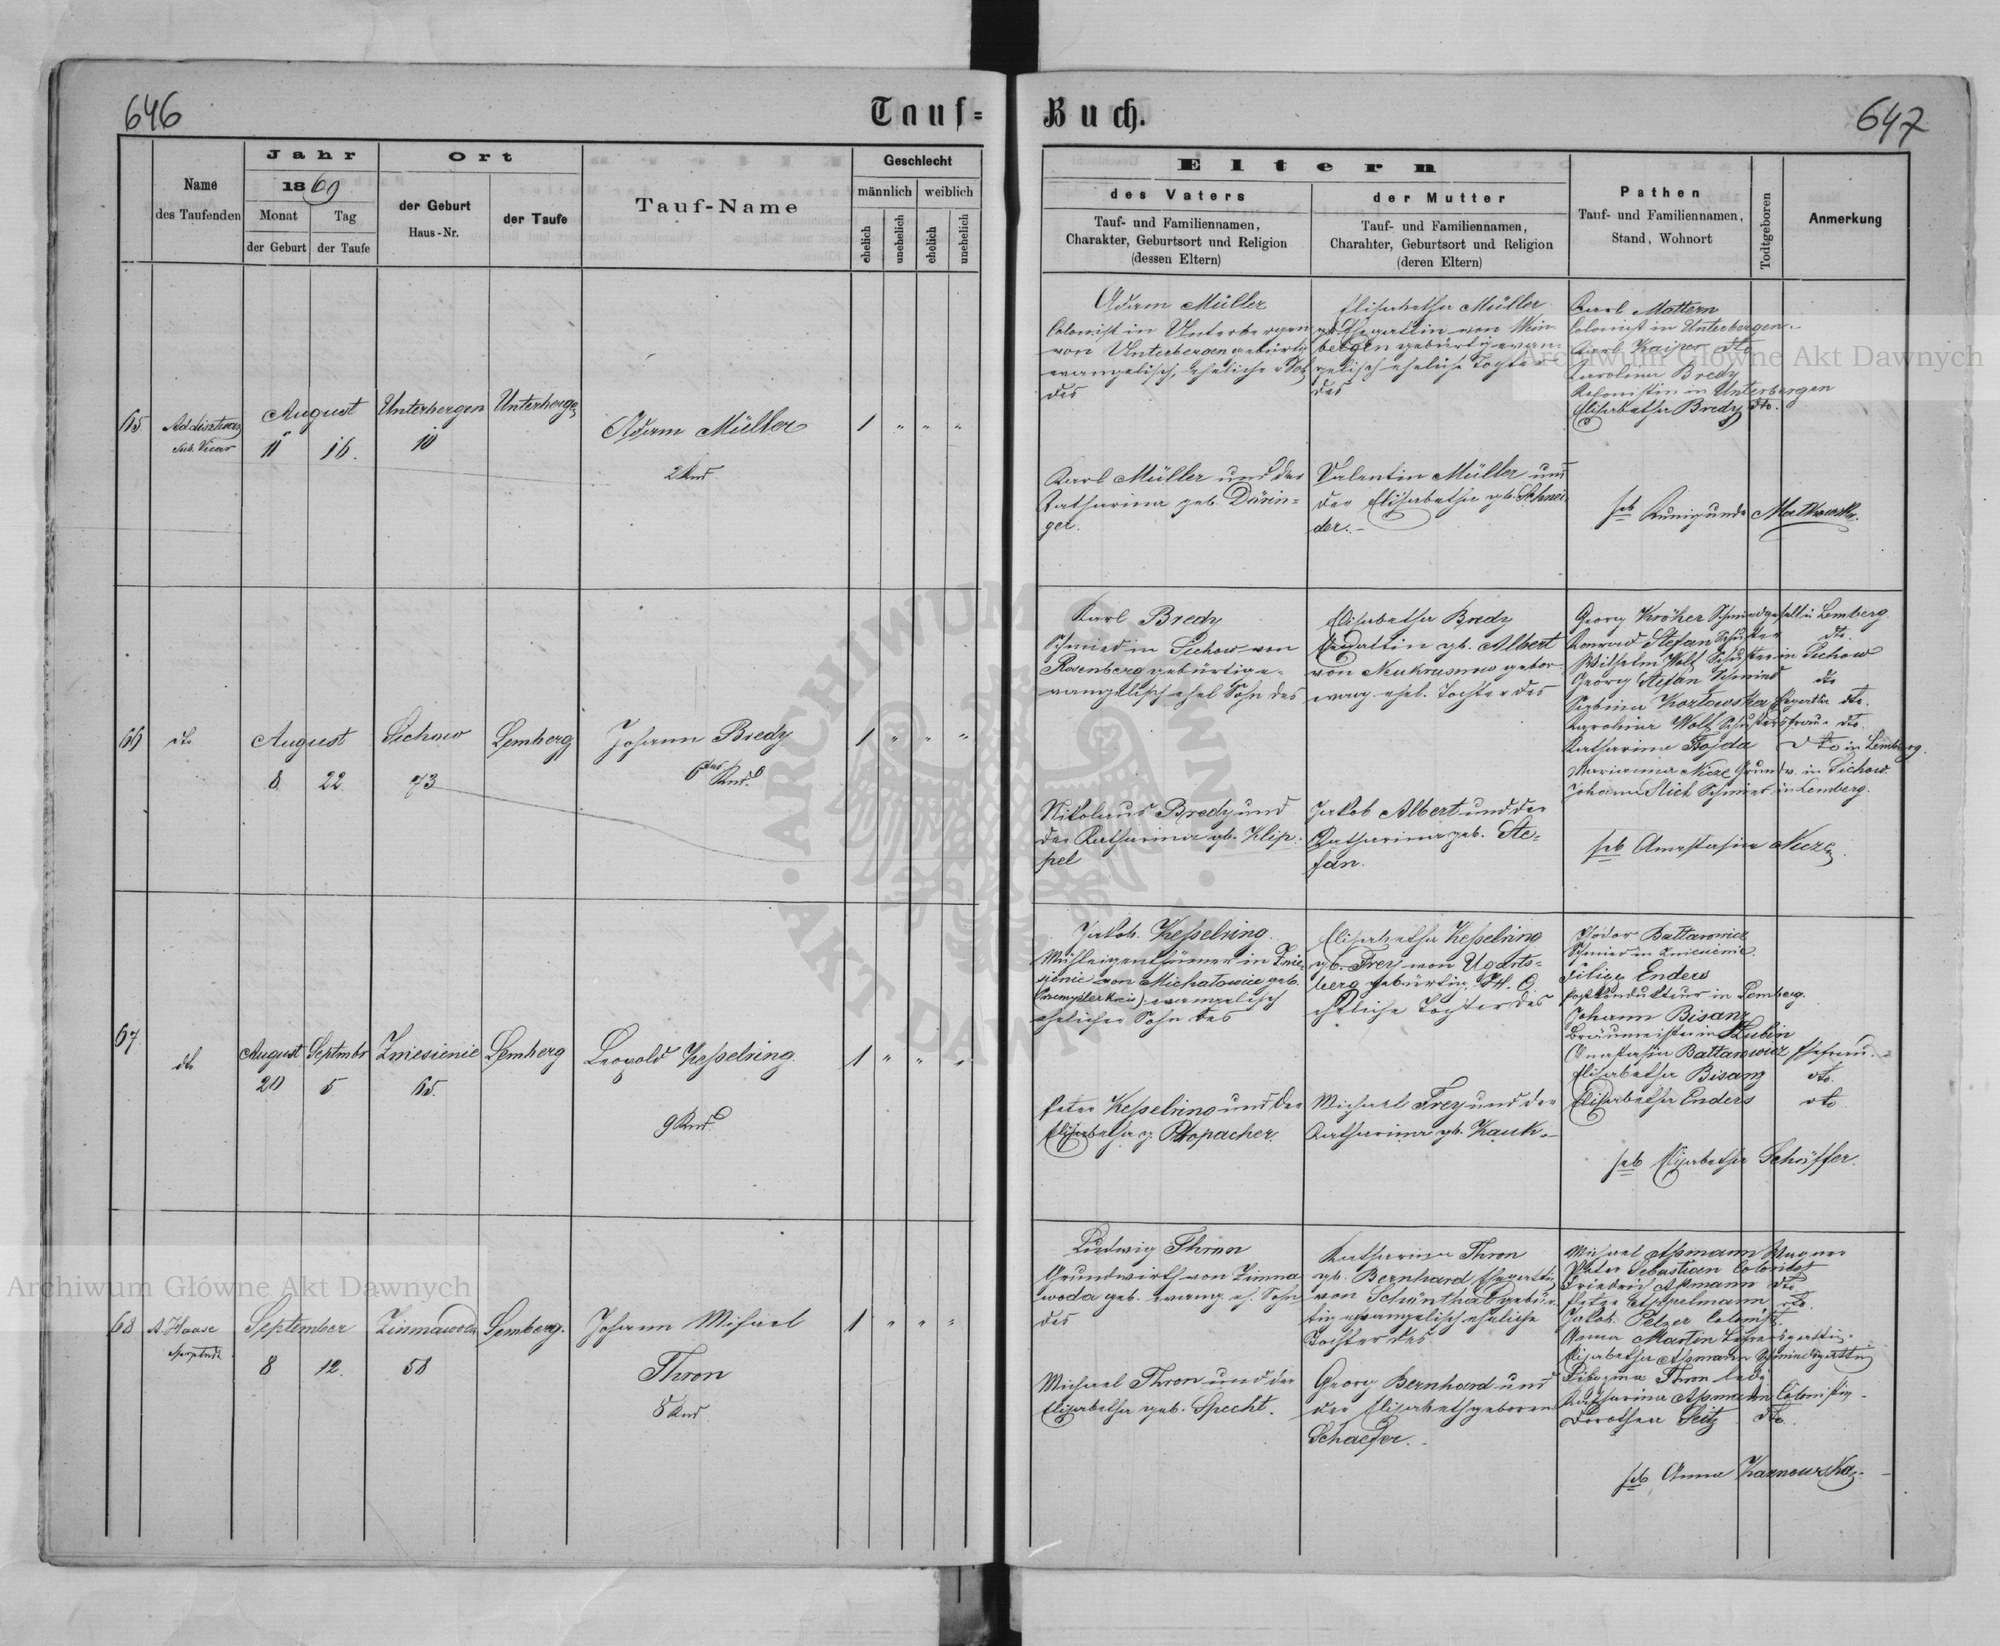 646
Tauf=
Buch.
647
Name
des Taufenden
Jahr
1869
Monat
der Geburt
Tag
der Taufe
Ort
der Geburt
Haus-Nr.
der Taufe
Tauf-Name
Geschlecht
männlich
weiblich
ehelich
unehelich
ehelich
unehelich
Eltern
des Vaters
Tauf- und Familiennamen,
Charakter, Geburtsort und Religion
(dessen Eltern)
der Mutter
Tauf- und Familiennamen,
Charahter, Geburtsort und Religion
(deren Eltern)
Pathen
Tauf- und Familiennamen,
Stand, Wohnort
Todtgeboren
Anmerkung
65
Vicar
August
11
16.
Unterbergen
10
Unterbergen
Adam Müller
2 Kind.
1 " " "
Adam Müller
Colonist in Unterbergen
von Unterbergen gebürtig
evangelisch, ehelicher Sohn
des
Karl Müller und der
Katharina geb. Dörin-
ger.
Elisabetha Müller
Ehegattin von Wein
bergen gebürtig evan
gelisch eheliche Tochter
des
Valentin Müller und
der Elisabetha gb. Schnei-
der.
Karl Mattern
Colonist in Unterbergen
Karl Kaiper dto
Karolina Bredy
Kolonistin in Unterbergen
Elisabetha Bredy dto.
heb Kunigunde Malkowska.
66
dto
August
8
22
Sichow
73
Lemberg
Johann Bredy
6tes Kind.
1 " " "
Karl Bredy
Schmied in Sichow von
Rosenberg gebürtig e-
vangelisch ehel Sohn des
Nikolaus Bredy und
der Katharina gb. Klip-
pel
Elisabetha Bredy
Ehegattin gb. Albert
von gebor
evang. ehel. Tochter des
Jakob Albert und der
Katharina geb. Ste-
fan.
Georg Kröher Schmiedgesell in Lemberg
Konrad Stefan Schuster dto.
Wilhelm Wolf Schuster in Sichow
Georg Stefan Schmied dto
Kozlowska Ehegattin dto.
Karolina Wolf Schustersfrau dto.
Katharina dto in Lemberg.
Marianna in Sichow
Johann Schmied in Lemberg.
heb Anastasia
67
dto
August
20
Septmbr
5
Zniesienie
65.
Lemberg
Leopold Kesselring.
9 Kind
1 " " "
Jakob Kesselring.
Mühleigenthümer in Znie-
sienie von Michalowice geb.
(Przemysler Kreis) evangelisch
ehelicher Sohn des
Peter Kesselring und der
Elisabetha g.
Elisabetha Kesselring
gb. Frey von Ugarts-
berg gebürtig. H. C.
eheliche Tochter des
Michael Frey und der
Katharina gb. Kauk.
Battarowicz
Schmied in Zniesienie.
Filipp Enders
Postkondukteur in Lemberg.
Johann Bisanz
Bräumeister in
Anastasia Battarowicz Ehefrau.
Elisabetha Bisanz dto.
Elisabetha Enders dto
heb Elisabetha Schäffer.
68
A. Haase
September
8
12.
Zimnawoda
58
Lemberg.
Johann Michael
Thron
8 Kind
1 " " "
Ludwig Thron
Grundwirth von Zimna
woda geb. evang. eh. Sohn
des
Michael Thron und der
Elisabetha geb. Specht.
Katharina Thron
gb. Bernhard Ehegattin
von Schönthal gebür
tig evangelisch eheliche
Tochter des
Georg Bernhard und
der Elisabeth geboren
Schaefer.
Michael Assmann Wagner
Peter Sebastian Colonist
Friedrich Assmann dto
Peter Appelmann dto.
Jakob Pelzer Colonist.
Anna Martin Lehrersgattin.
Elisabetha Assmann Schmiedsgattin
Filippina Thron ledig
Katharina Assmann Colonistin
Dorothea Seitz dto.
heb Anna Karnowska.
Archiwum Główne Akt Dawnych
Archiwum Główne Akt Dawnych